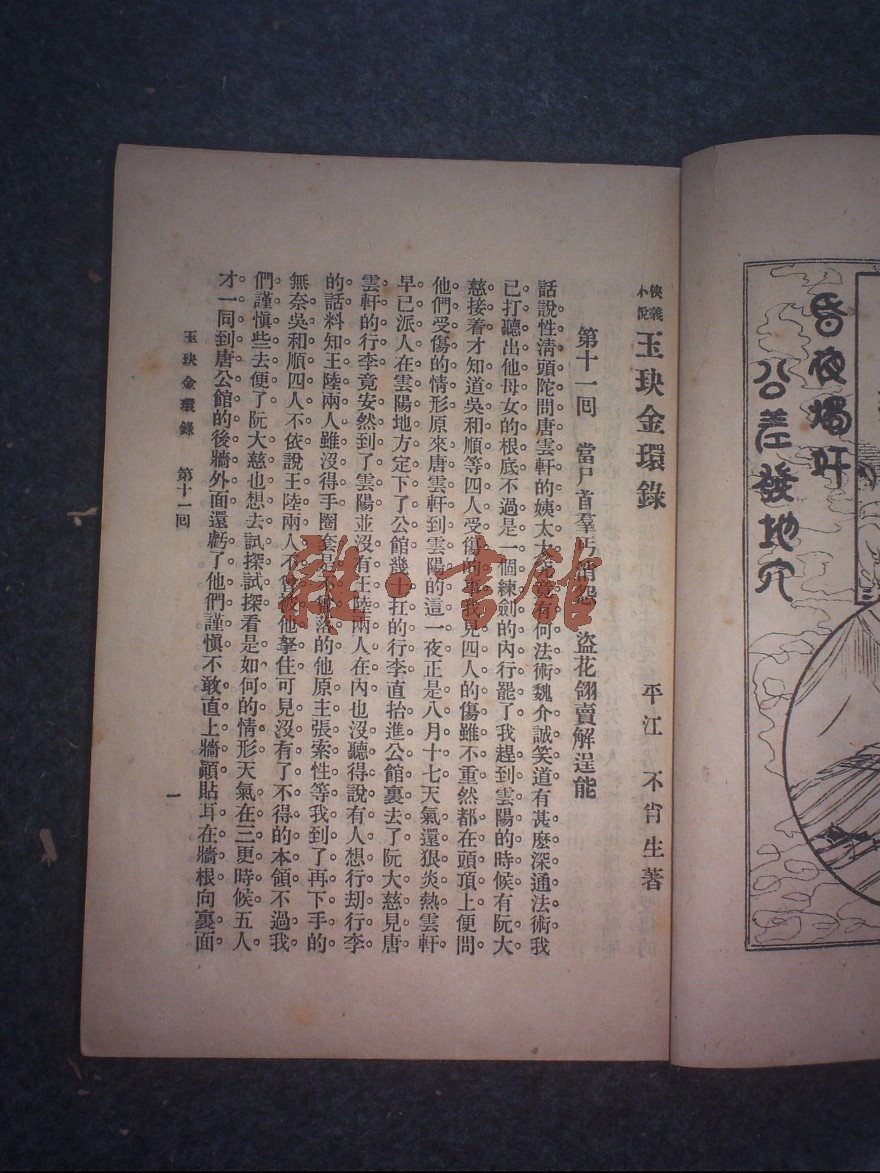 昏夜燭奸
公差發地穴
俠義
小說
玉玦金環錄
平江 不肖生著
第十一回 當尸首羣丐消怨 盜花翎賣解逞能
話說性清頭陀問唐雲軒的姨太太究竟有何法術魏介誠笑道有甚麼深通法術我
已打聽出他母女的根底不過是一個練劍的內行罷了我趕到雲陽的時候有阮大
慈接着才知道吳和順等四人受傷的事我見四人的傷雖不重然都在頭頂上便問
他們受傷的情形原來唐雲軒到雲陽的這一夜正是八月十七天氣還狠炎熱雲軒
早已派人在雲陽地方定下了公館幾十扛的行李直抬進公館裏去了阮大慈見唐
雲軒的行李竟安然到了雲陽並沒有王陸兩人在內也沒聽得說有人想行刧行李
的話料知王陸兩人雖沒得手圈套是不曾落的他原主張索性等我到了再下手的
無奈吳和順四人不依說王陸兩人不曾被他拏住可見沒有了不得的本領不過我
們謹愼些去便了阮大慈也想去試探試探看是如何的情形天氣在三更時候五人
才一同到唐公館的後牆外面還虧了他們謹愼不敢直上牆顚貼耳在牆根向裏面
玉玦金環錄 第十一回
一
雜·書館